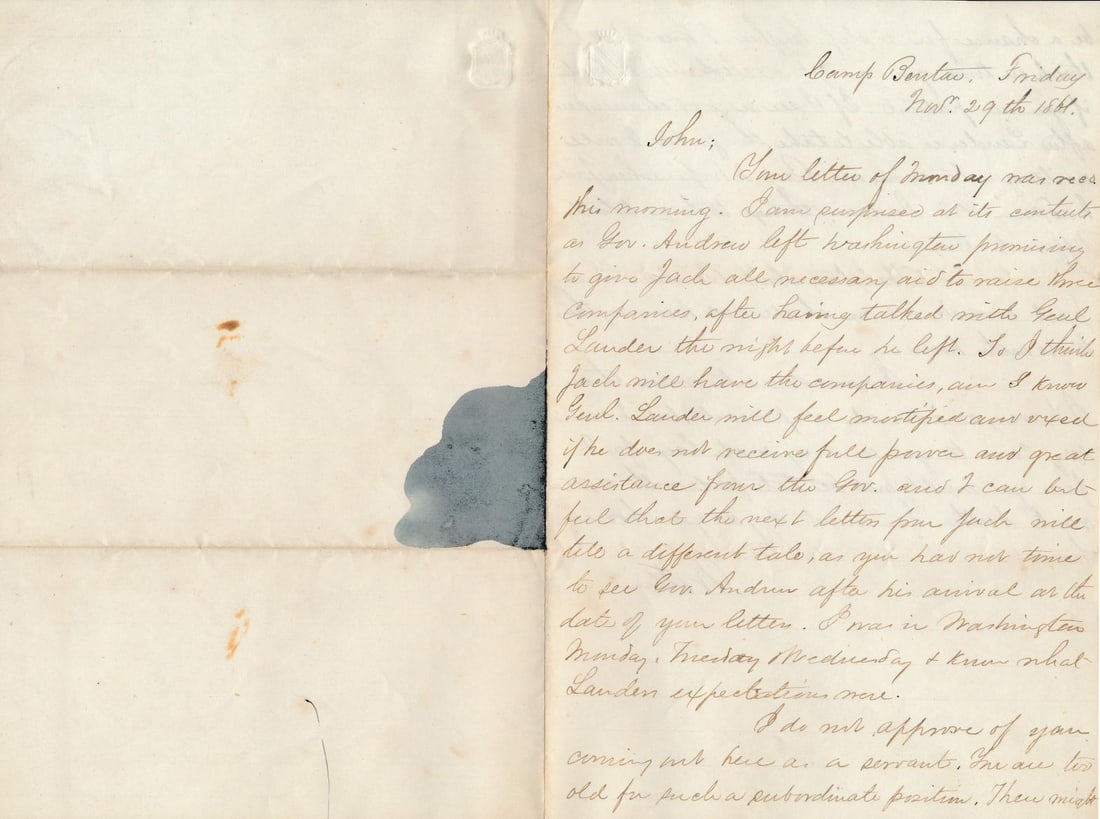 Camp Benton, Friday
Novr. 29th 1861.
John;
Your letter of Monday was recd
this morning. I am surprised at its contents
as Gov. Andrew left Washington promising
to give Jack all necessary aid to raise three
companies, after having talked with Genl
Lander the night before he left. So I think
Jack will have the companies, and I know
Genl. Lander will feel mortified and vexed
if he does not receive full power and great
assistance from the Gov. and I can but
feel that the next letters from Jack will
tell a different tale, as you had not time
to see Gov. Andrew after his arrival at the
date of your letters. I was in Washington
Monday, Tuesday Wednesday & know what
Landers expectations were.
I do not approve of your
coming out here as a servant. You are too
old for such a subordinate position. There might